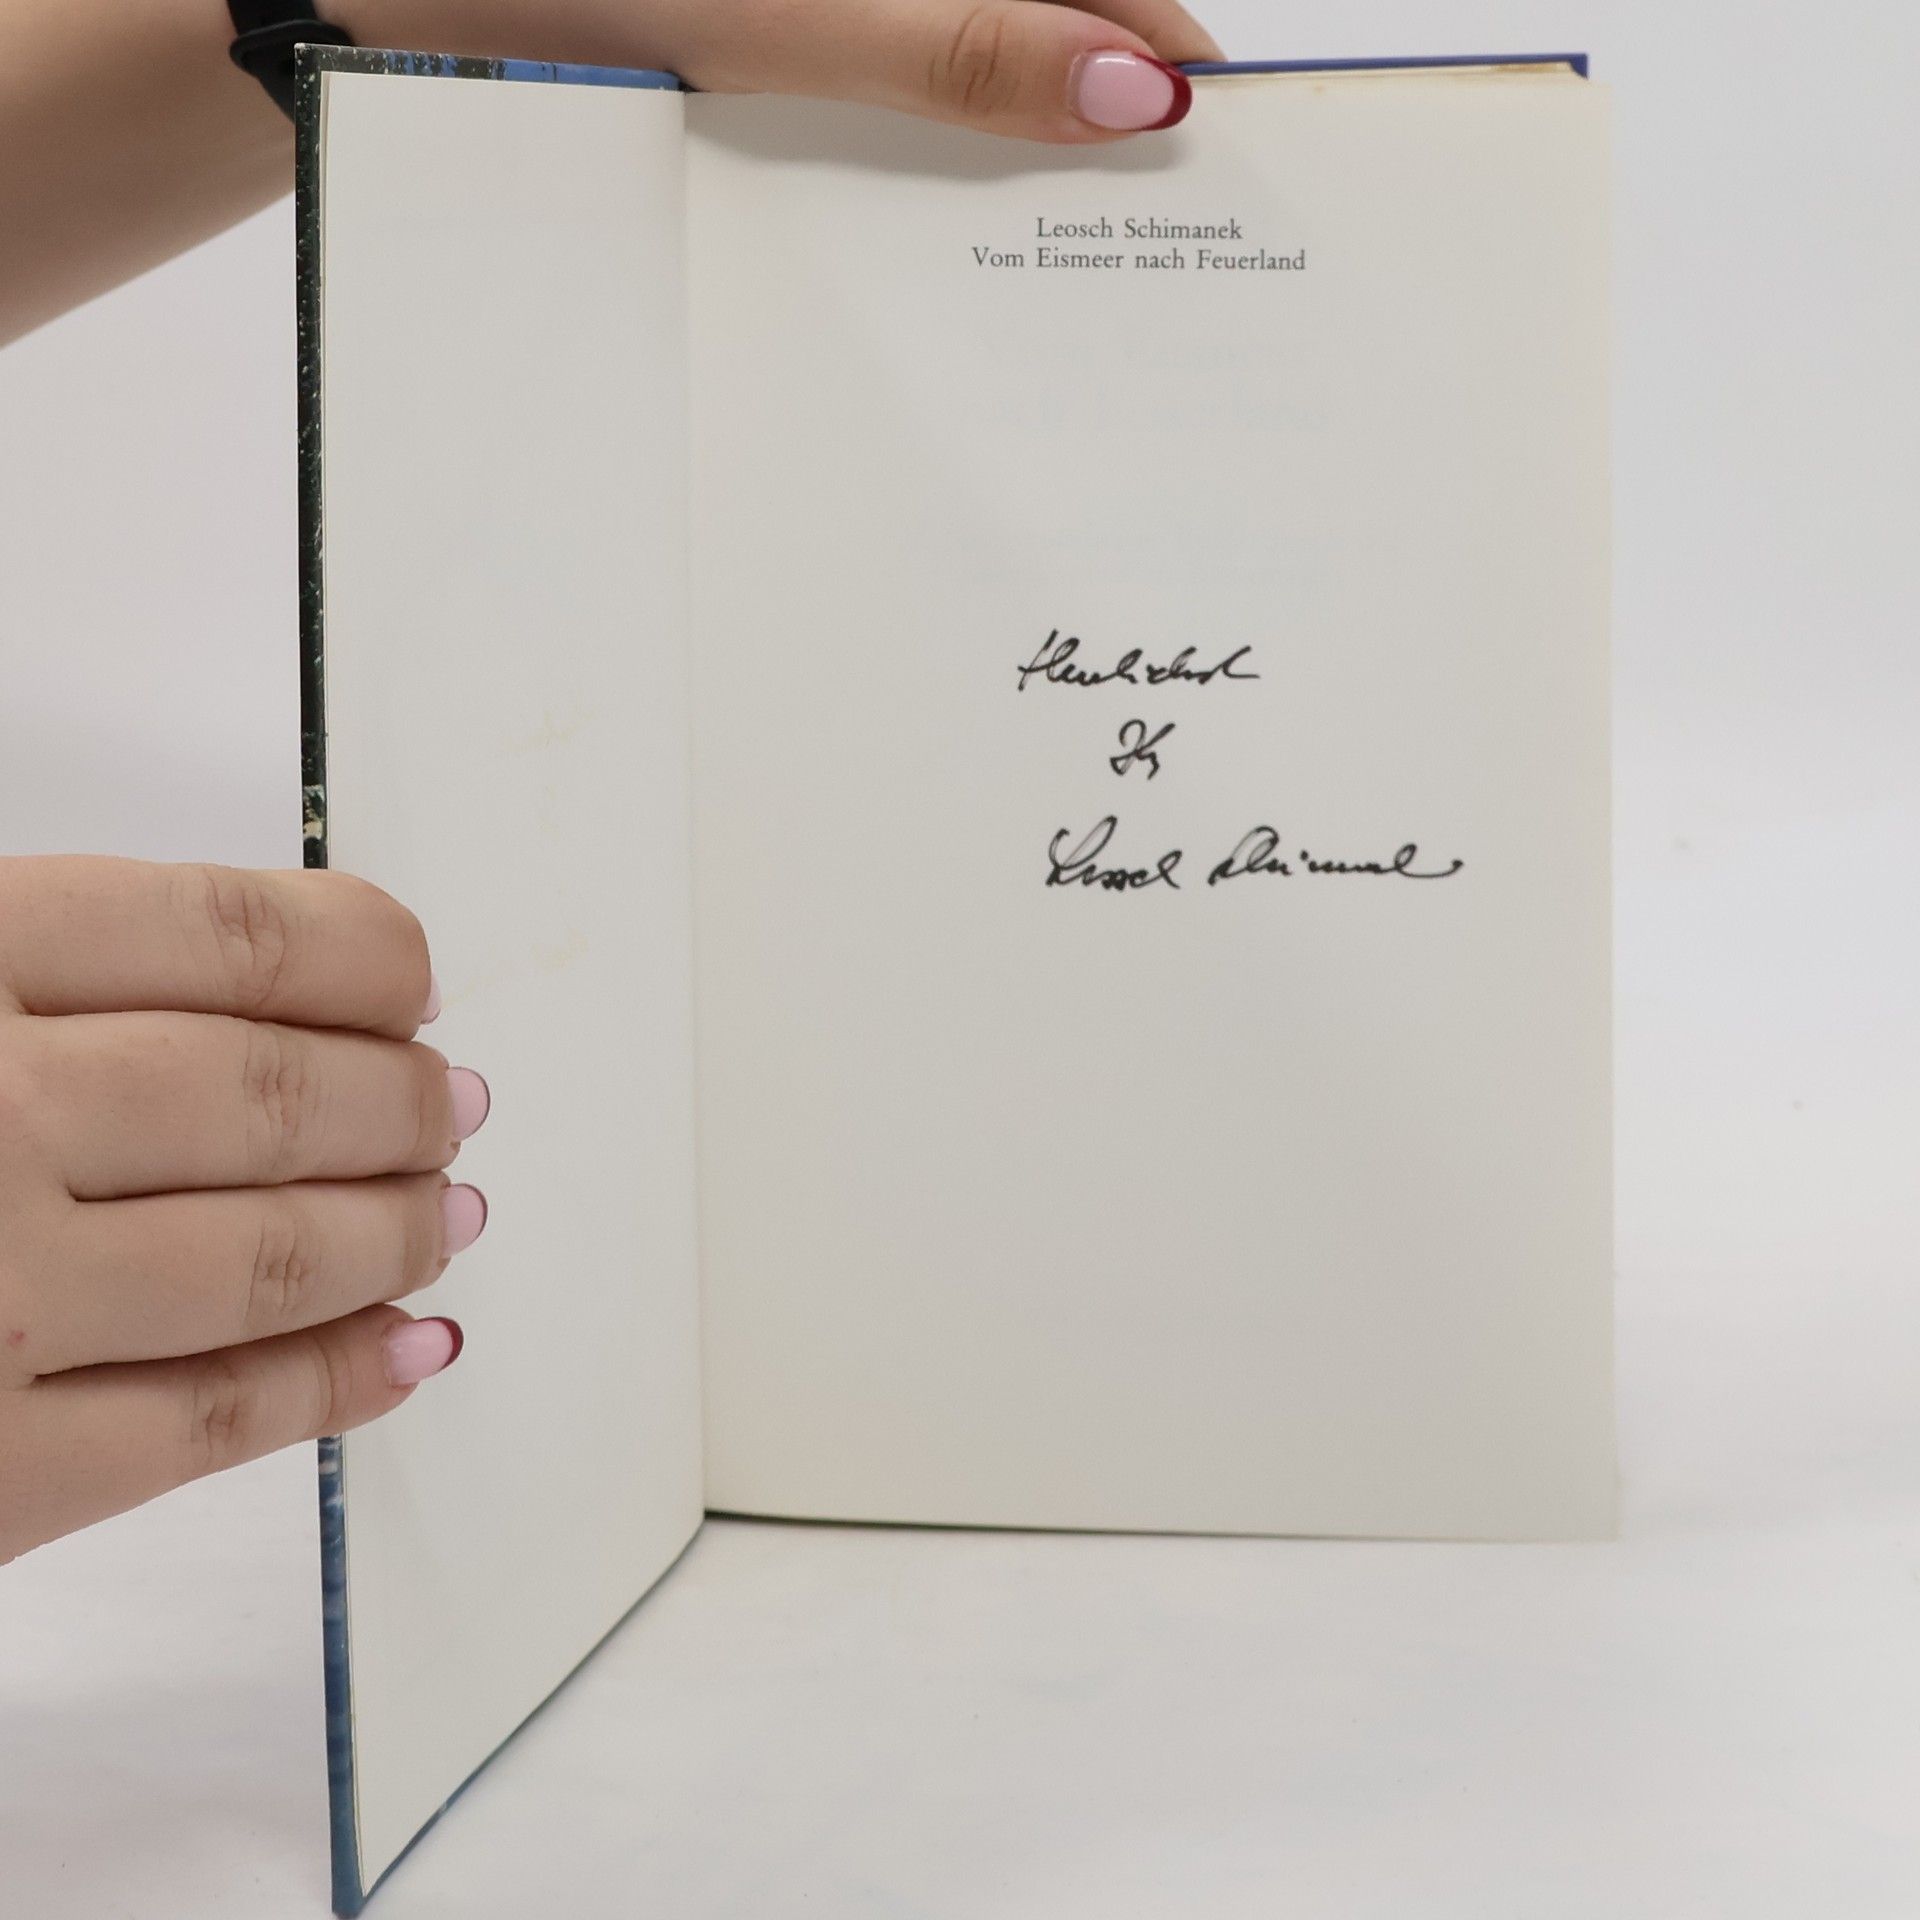 Leosch Schimanek
Vom Eismeer nach Feuerland
Herzlichst
Ihr
Leosch Schimanek